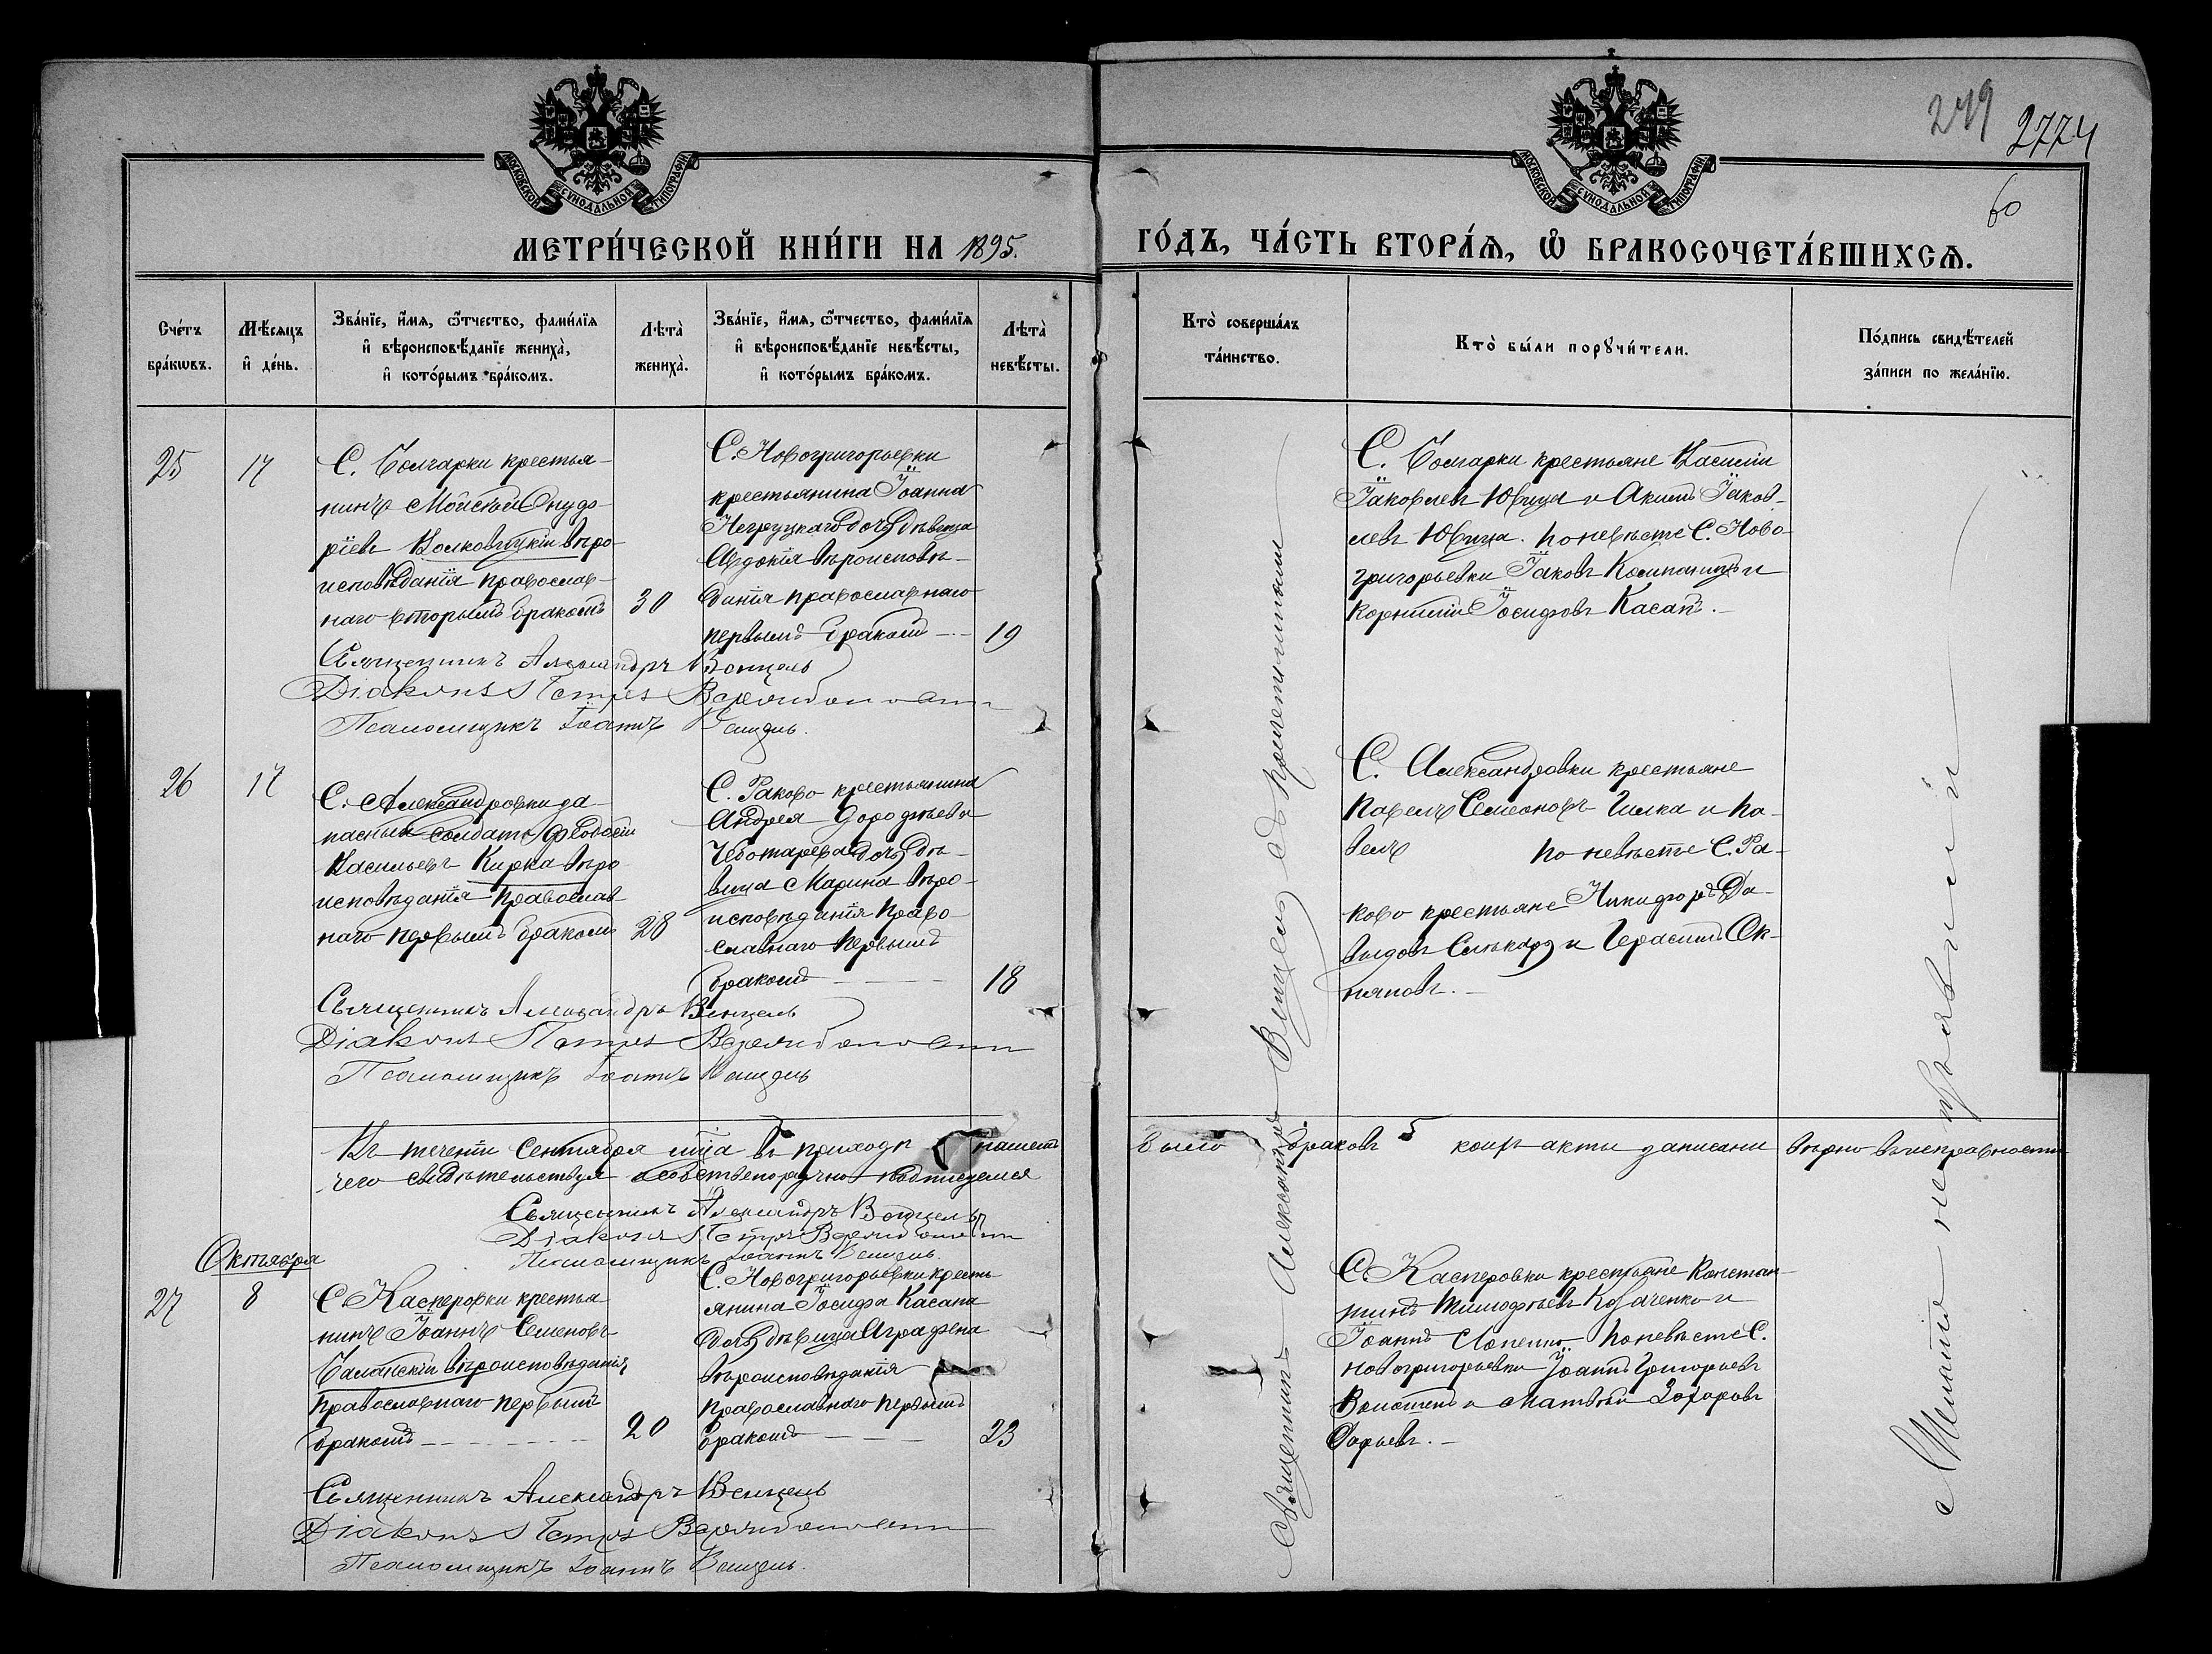 249
2774
60
МОСКОВСКОЙ СѴНОДАЛЬНОЙ ТИПОГРАФІИ
МОСКОВСКОЙ СѴНОДАЛЬНОЙ ТИПОГРАФІИ
МЕТРИ́ЧЕСКОЙ КНИ́ГИ НА 1895.
ГО́ДЪ, ЧА́СТЬ ВТОРА́Ѧ, Ѽ БРАКОСОЧЕТА́ВШИХСѦ.
Сче́тъ бра́кѡвъ.
Мѣ́сѧцъ и҆ де́нь.
Зва́нїе, и҆́мѧ, ѻ҆́тчество, фами́лїѧ
и҆ вѣроисповѣ́данїе жениха̀,
и҆ кото́рымъ бра́комъ.
Лѣта̀ жениха̀.
Зва́нїе, и҆́мѧ, ѻ҆́тчество, фами́лїѧ
и҆ вѣроисповѣ́данїе невѣ́сты,
и҆ кото́рымъ бра́комъ.
Лѣта̀ невѣ́сты.
Кто̀ соверша́лъ
та́инство.
Кто̀ бы́ли порꙋчи́тели.
По́дпись свидѣ́телей
за́писи по жела́нїю.
25
17
С. Болгарки крестья-
нинъ Мойсей Онуф-
ріевъ Волковицкій вѣро
исповѣданія православ-
наго вторымъ бракомъ
30
С. Новогригорьевки
крестьянина Іоанна
Негруцкаго дочь дѣвица
Авдокія вѣроисповѣ-
данія православнаго
первымъ бракомъ
19
С. Болгарки крестьяне Василій
Іаковлевъ Юрица и Акимъ Іаков-
левъ Юрица. По невѣсте С. Ново-
григорьевки Іаковъ Компаницъ и
Корнилій Іосифовъ Касап.-
Священникъ Александръ Венцель
Діаконъ Петръ
Псаломщикъ Іоаннъ Венцель.
26
17
С. Александровки за-
пасный солдатъ Феодосій
Васильевъ Кирка вѣро
исповѣданія православ
наго первымъ бракомъ
28
С. Раково крестьянина
Андрея Дорофѣева
Чеботарева дочь дѣ-
вица Марина вѣро-
исповѣданія право
славнаго первымъ
бракомъ
18
С. Александровки крестьяне
Павелъ Семеоновъ Гилка и Па-
велъ По невѣсте С. Ра-
ково крестьяне Никифоръ Да-
выдовъ и Герасимъ
Священникъ Александръ Венцель
Діаконъ Петръ
Псаломщикъ Іоаннъ Венцель
Въ теченіи Сентября мца въ приходѣ нашемъ было браковъ 5 коихъ акты записаны вѣрно въ исправности
чего свидѣтельствуя собственоручно подписуемся
Священникъ Александръ Венцель
Діаконъ Петръ
Псаломщикъ Іоаннъ Венцель.
Октября
27
8
С Касперовки крестья
нинъ Іоаннъ Семеновъ
Баланскій вѣроисповѣданія
православнаго первымъ
бракомъ
20
С. Новогригорьевки кресть
янина Іосифа Касапа
дочь дѣвица Аграфена
вѣроисповѣданія
православнаго первымъ
бракомъ
23
С. Касперовки крестьяне Констан-
тинъ Тимофѣевъ Козаченко и
Іоаннъ По невѣсте С.
Новогригорьевки Іоаннъ Григорьевъ
и Матвѣй Захаровъ
Священникъ Александръ Венцель
Діаконъ Петръ
Псаломщикъ Іоаннъ Венцель.
Священникъ Александръ Венцель съ причетниками